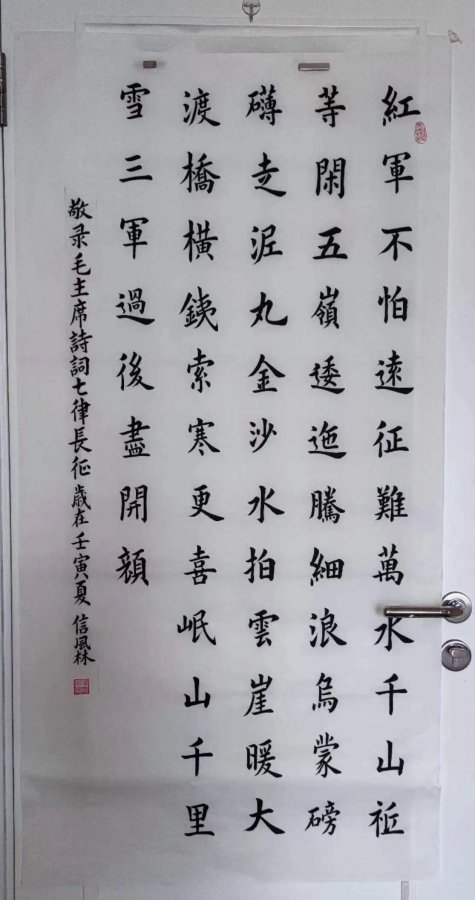 紅軍不怕遠征難萬水千山祗
等閑五嶺逶迤騰細浪烏蒙磅
礴走泥丸金沙水拍雲崖暖大
渡橋橫銕索寒更喜岷山千里
雪三軍過後盡開顔
敬录毛主席詩詞七律長征歲在壬寅夏 信風林